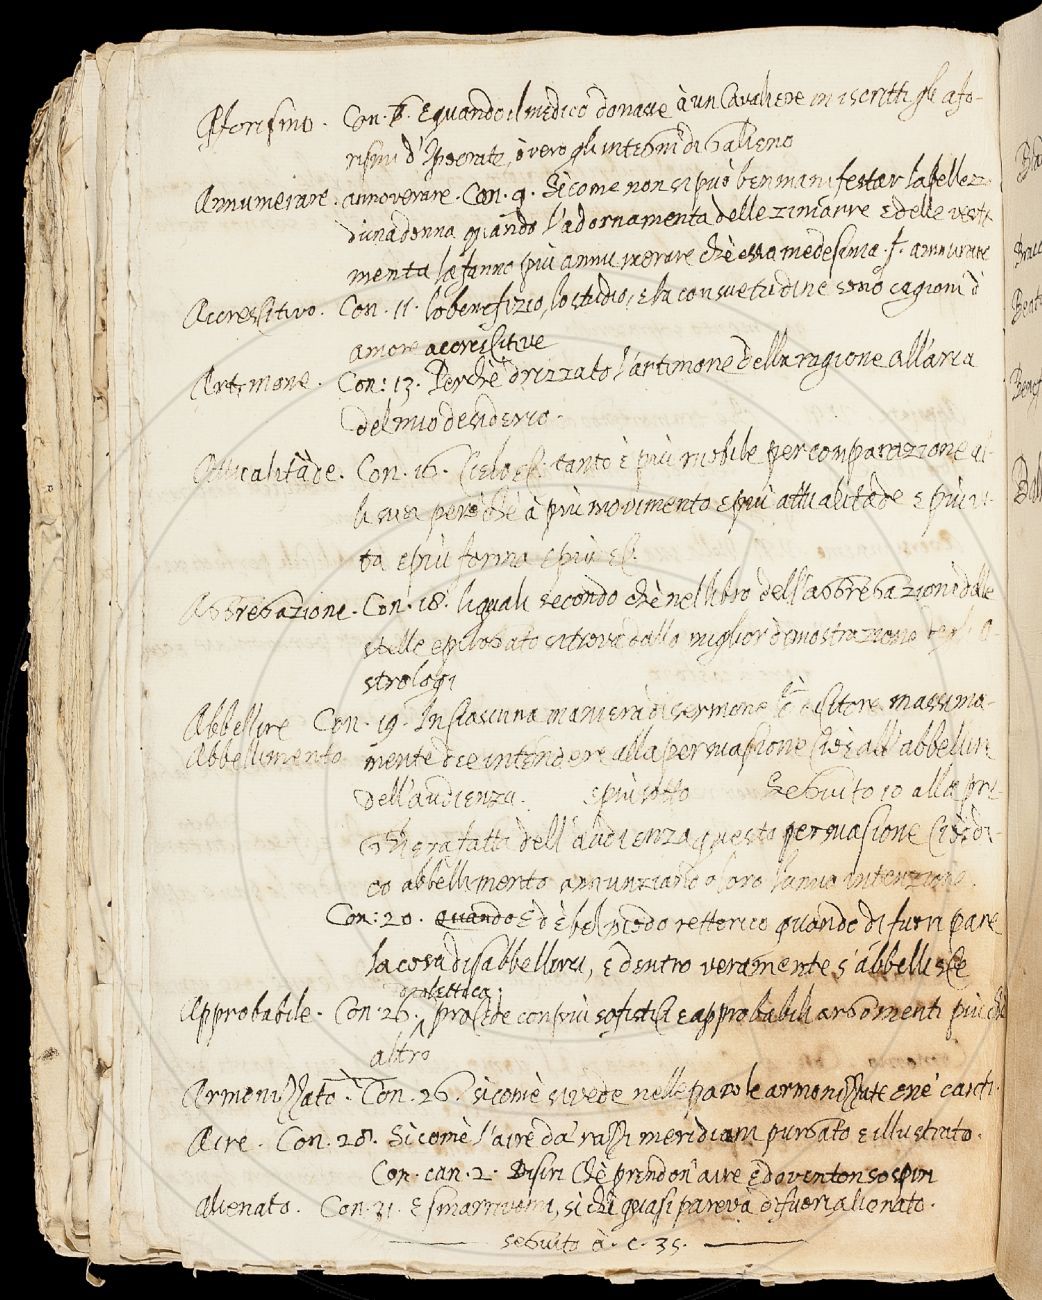 Aforismo. Con. E quando il medico donasse à un Cavaliere iniscritti gli afo-
rismi d'Ipocrate, overo gli di Galieno
Annumerare. annoverare. Con. 9. Sicome non si può ben manifestar la bellez
d'una donna quando l'adornamenta delle zimarre e delle vesti
menta la fanno più annumerare chè essa medesima
Accressitivo. Con. 11. lo benefizio, lo studio, e la consuetudine sono cagioni d'
amore accressitive
Artimone. Con: 13. Perchè drizzato l'artimone della ragione all'aria
del mio desiderio.
Attualitàde. Con. 16. tanto è più nobile per comparazione al-
li suoi però chè à più movimento e più attualitàde e più vi-
ta e più forma e più
Aggregazione. Con. 18. li quali secondo chè nel libro dell'aggregazioni delle
stelle epilogato si trova dalla miglior dimostrazione A-
strologi
Abbellire Con. 19. In ciascuna maniera di sermone dicitore massima-
Abbellimento mente dee intendere alla persuasione cioè all'abbellire
dell'audienza. e più sotto Seguito io alla pri-
tatti dell'audienza questa persuasione cioè di-
co abbellimento annunziando loro la mia intenzione.
Con: 20. quando Ed è bel modo rettorico quando di fuori pare
la cosa disabbellirsi, e dentro veramente s'abbellisce
dialettica.
Approbabile. Con. 26. procede con più sofistici e approbabili argomenti più che
altro
Armonizzato. Con. 26. sicomè si vede nelle parole armonizzate e ne' canti.
Aire. Con. 28. Sicomè l'aire da' razzi meridiani purgato e illustrato.
Con. can. 2. Disiri chè prendon' aire e doventon sospiri
Alienato. Con. 31. E smarrivomi, sì chè quasi pareva di fuori alienato.
seguito à. c. 35.